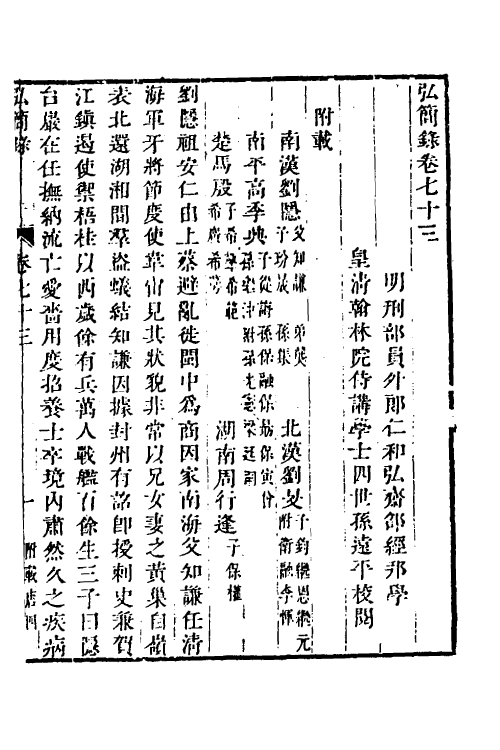 弘簡錄卷七十三
明刑部員外郎仁和弘齋邵經邦學
皇清翰林院侍講學士四世孫遠平校閱
附載
南漢劉隱父知謙 弟龑 子玢晟 孫鋹
北漢劉旻子鈞繼恩繼元 附衛融李惲
南平高季興子從誨孫保融保勗保寅 孫繼沖附孫光憲梁延嗣
楚馬殷子希聲希範 希廣希萼
湖南周行逢子保權
劉隱祖安仁由上蔡避亂徙閩中爲商因家南海父知謙任清
海軍牙將節度使韋宙見其狀貌非常以兄女妻之黃巢自嶺
表北還湖湘間羣盜蟻結知謙因據封州有詔卽授刺史兼賀
江鎮遏使禦梧桂以西歲餘有兵萬人戰艦百餘生三子曰隱
台巖在任撫納流亡愛嗇用度招養士卒境內肅然久之疾病
弘簡錄
卷七十三
一
附載